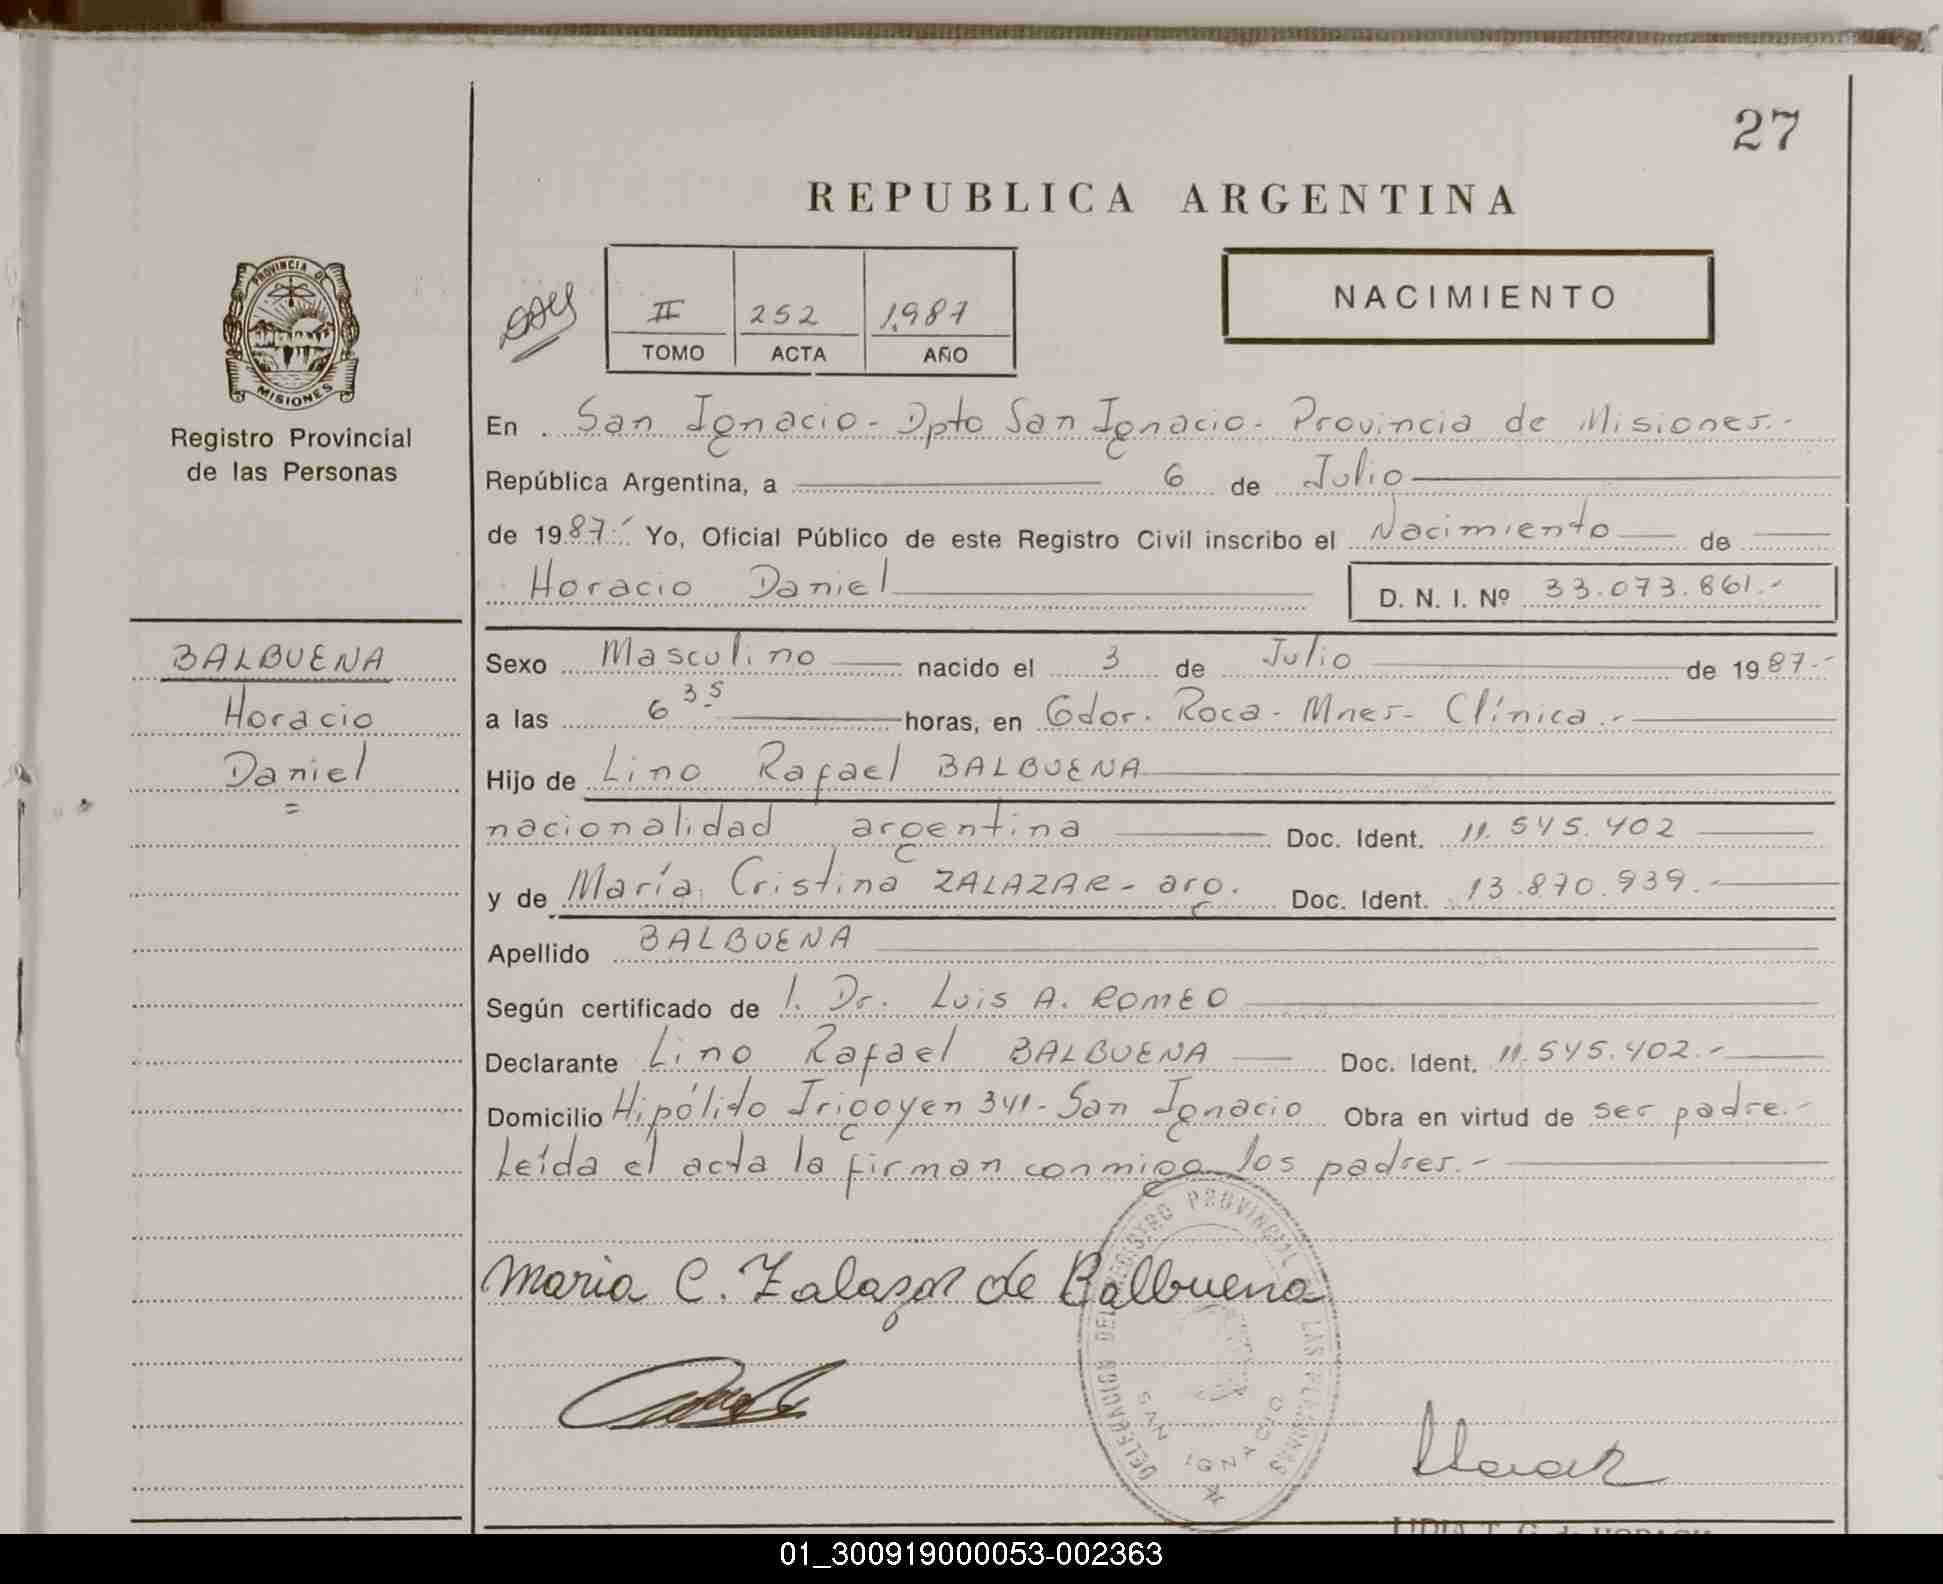 27
REPUBLICA ARGENTINA
II 252 1.987
TOMO ACTA AÑO
NACIMIENTO
PROVINCIA DE
MISIONES
Registro Provincial
de las Personas
En San Ignacio - Dpto San Ignacio - Provincia de Misiones.-
República Argentina, a 6 de Julio
de 1987.- Yo, Oficial Público de este Registro Civil inscribo el Nacimiento de
Horacio Daniel D. N. I. Nº 33.073.861.-
BALBUENA
Horacio
Daniel
=
Sexo Masculino nacido el 3 de Julio de 1987.-
a las 6 35 horas, en Gdor. Roca - Mnes - Clínica.-
Hijo de Lino Rafael BALBUENA
nacionalidad argentina Doc. Ident. 11.545.402
y de María Cristina ZALAZAR - arg. Doc. Ident. 13.870.939.-
Apellido BALBUENA
Según certificado de 1. Dr. Luis A. ROMEO
Declarante Lino Rafael BALBUENA Doc. Ident. 11.545.402.-
Domicilio Hipólito Irigoyen 341 - San Ignacio Obra en virtud de ser padre.-
Leída el acta la firman conmigo los padres.-
Maria C. Zalazar de Balbuena
DELEGACION DEL REGISTRO PROVINCIAL DE LAS PERSONAS
SAN IGNACIO
01_300919000053-002363